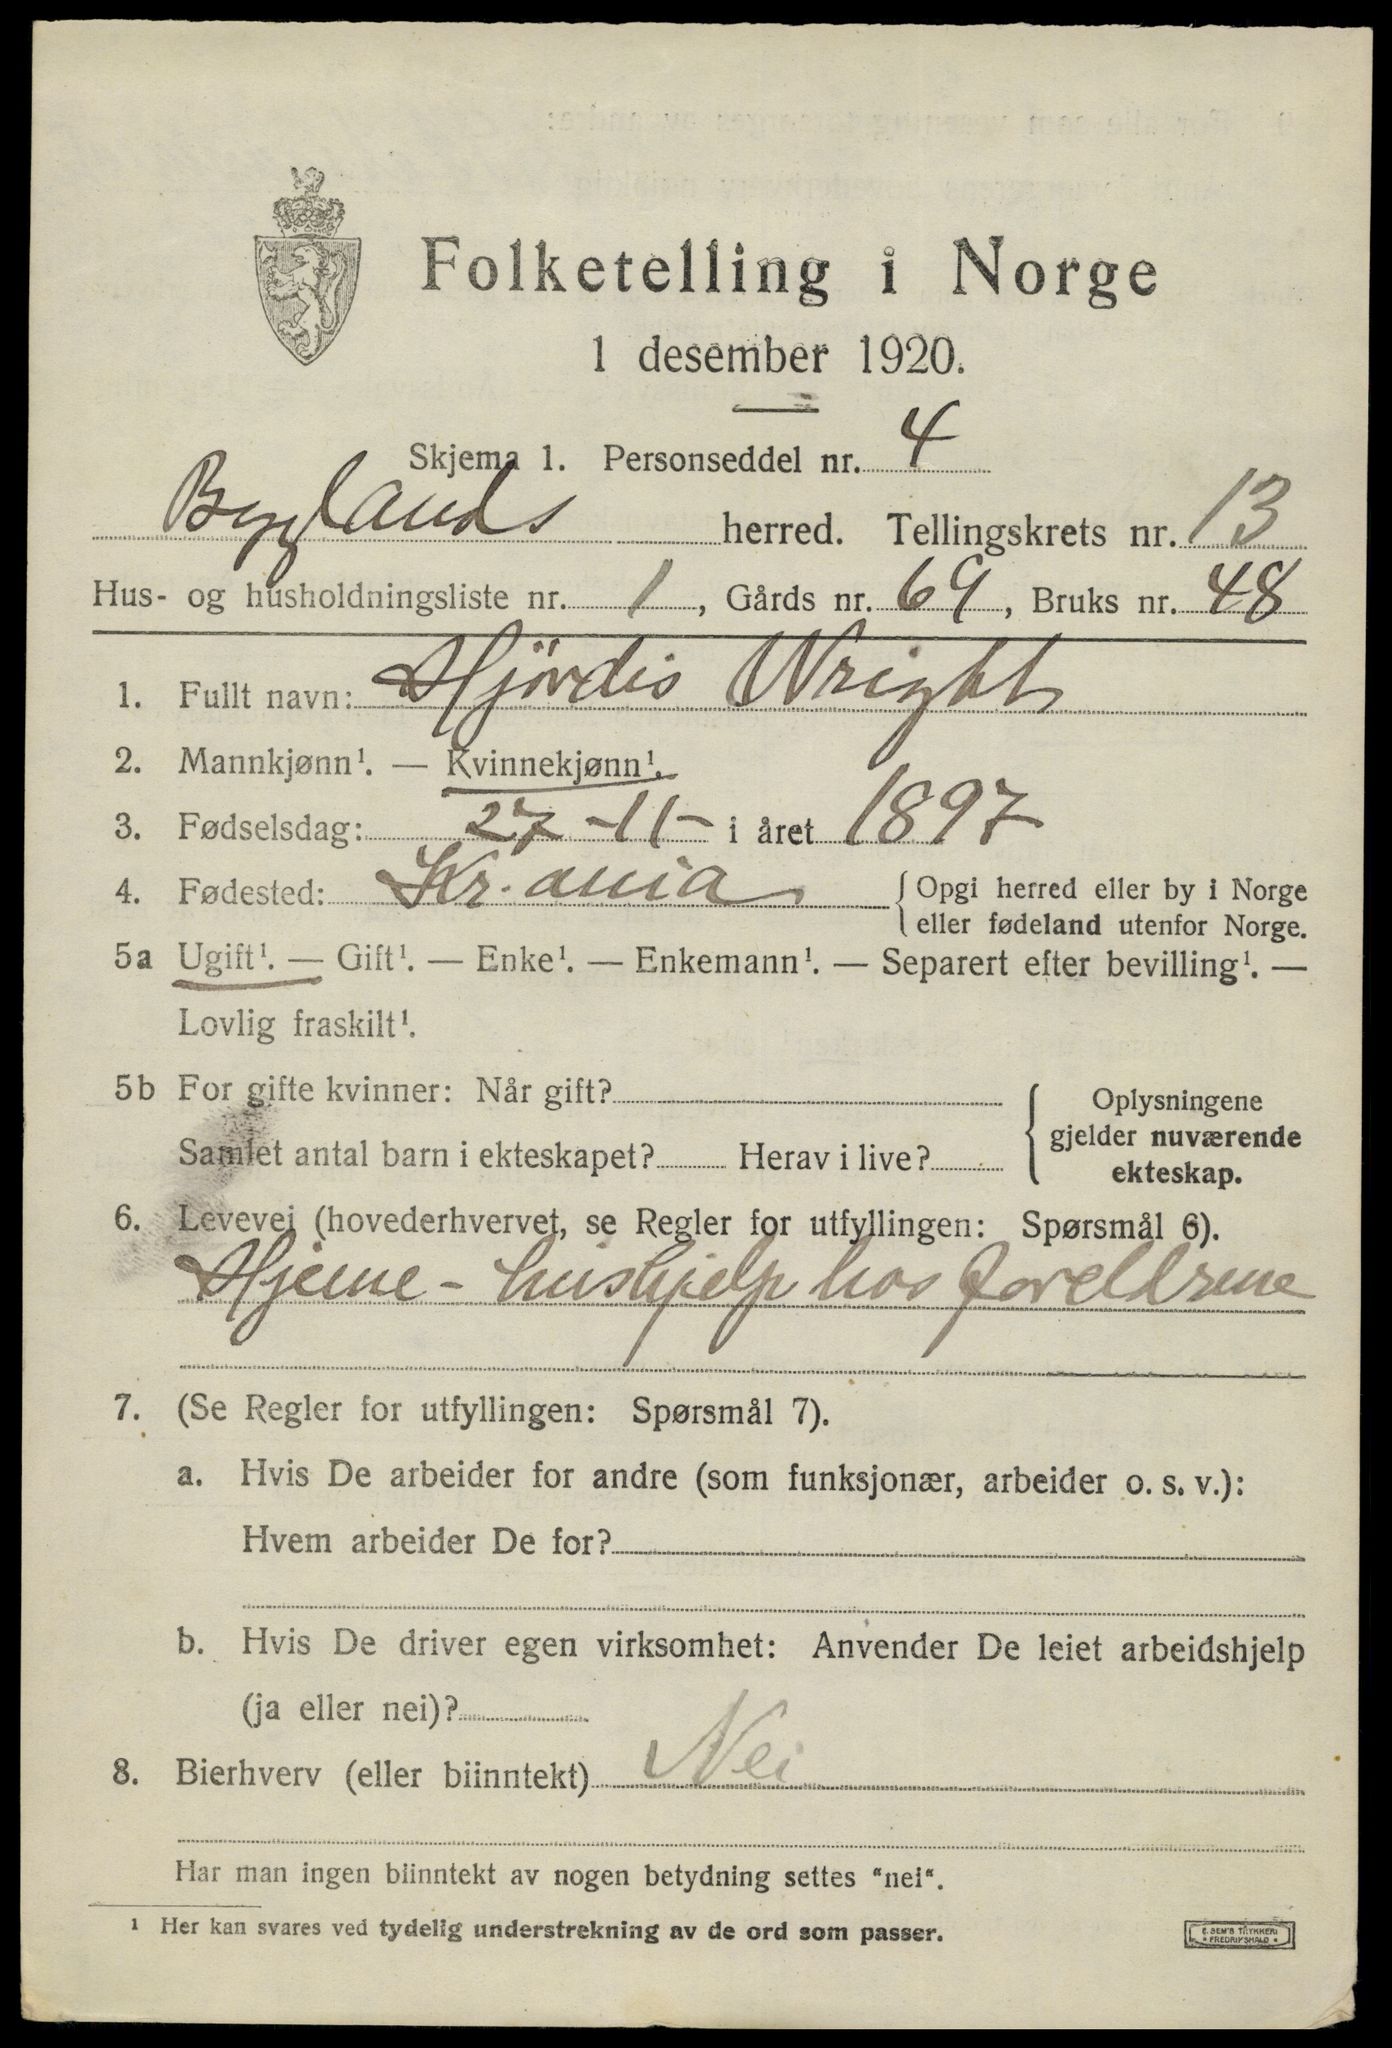 Folketelling i Norge
1 desember 1920.
Skjema 1. Personseddel nr. 4
Byglands herred. Tellingskrets nr. 13
Hus- og husholdningsliste nr. 1, Gårds nr. 69, Bruks nr. 48
1. Fullt navn: Hjördis Wright
2. Mannkjønn¹. — Kvinnekjønn¹.
3. Fødselsdag: 27-11- i året 1897
4. Fødested: Kr.ania { Opgi herred eller by i Norge
eller fødeland utenfor Norge.
5a Ugift¹. — Gift¹. — Enke¹. — Enkemann¹. — Separert efter bevilling¹. —
Lovlig fraskilt¹.
5b For gifte kvinner: Når gift? { Oplysningene
gjelder nuværende
Samlet antal barn i ekteskapet? Herav i live?
ekteskap.
6. Levevei (hovederhvervet, se Regler for utfyllingen: Spørsmål 6).
Hjeme - hushjelp hos foreldrene
7. (Se Regler for utfyllingen: Spørsmål 7).
a. Hvis De arbeider for andre (som funksjonær, arbeider o. s. v.):
Hvem arbeider De for?
b. Hvis De driver egen virksomhet: Anvender De leiet arbeidshjelp
(ja eller nei)?
8. Bierhverv (eller biinntekt) Nei
Har man ingen biinntekt av nogen betydning settes "nei".
¹ Her kan svares ved tydelig understrekning av de ord som passer.
E. SEM'S TRYKKERI
FREDRIKSHALD